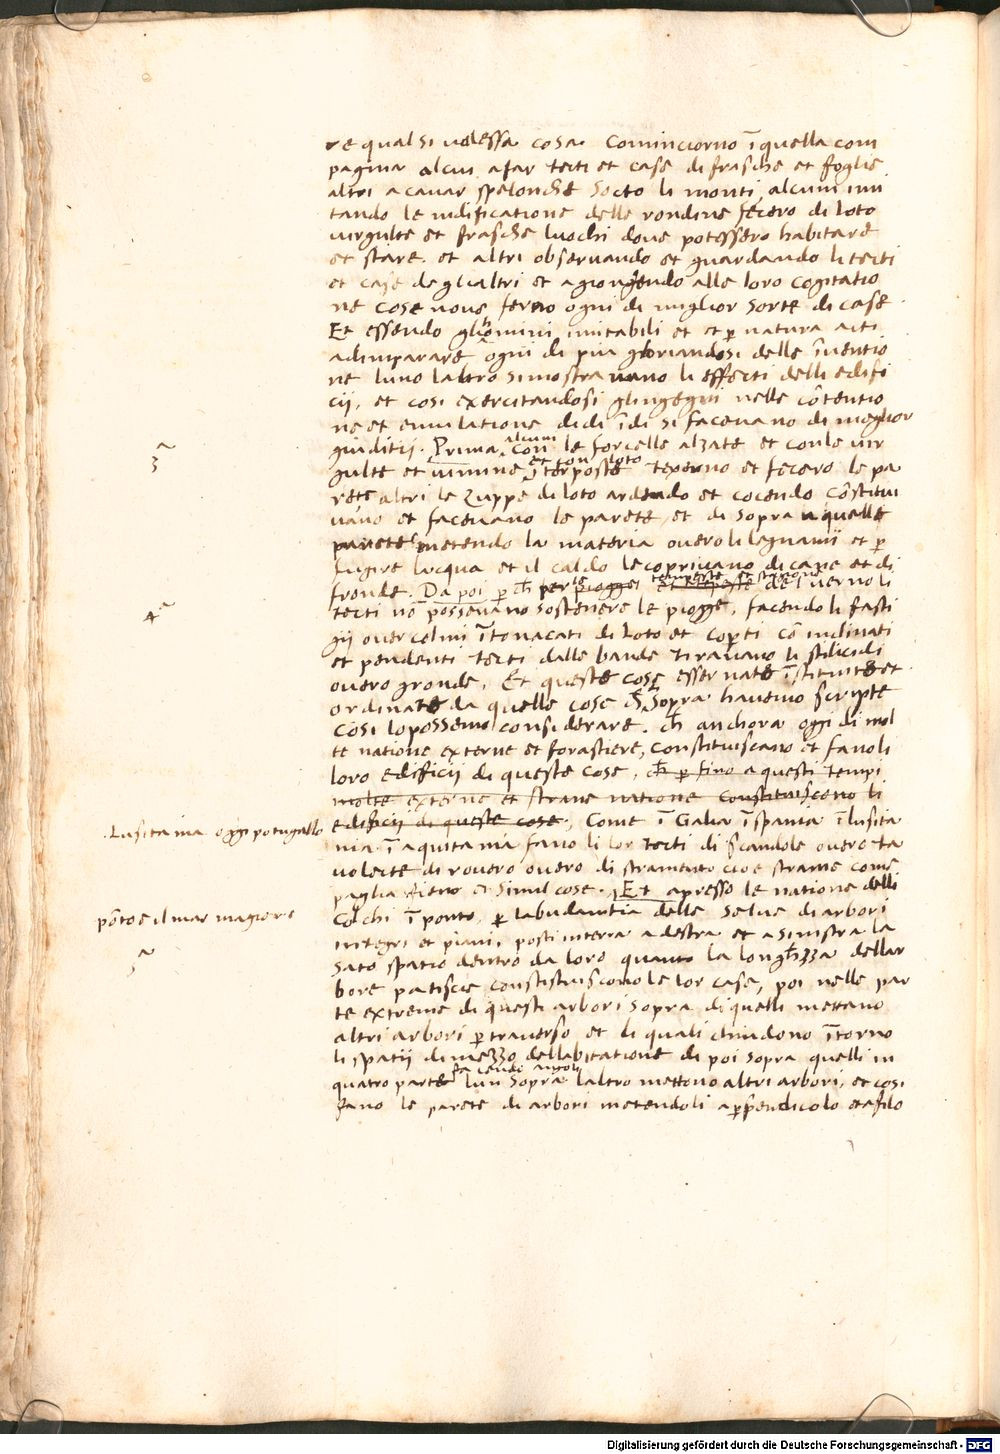 re qual si volessa cosa. Cominciorno ī quella com
pagnia alcui afar tecti et case di frasche et foglie
altri a cavar spelonche socto li monti, alcuni imi
tando le edificatione delle rondine fecero di loto
virgulte et frasche luochi dove potessero habitare
et stare. et altri observando et guardando li tecti
et case deglialtri et agiongendo alle loro cogitatio
ne cose nove ferno ogni di miglior sorte di case.
Et essendo glhomini imitabili et et p natura acti
adimparare ogni di piu gloriandosi delle īventio
ne luno laltro si mostravano li effecti delli edifi
cij, et cosi exercitandosi glingegni nelle cōtentio
ne et emulatione di di ī di si facevano di meglior
giuditij. Prima alcuni con le forcelle alzate et con le vir
gulte et vimine īterposte et con loto texerno et fecero le pa
rete altri le zuppe di loto ardendo et cocendo cōstitui
vano et facevano le parete, et di sopra a quelle
parete metendo la materia overo li legnami et p
fugire lacqua et il caldo le coprivano di cape et di
fronde. Da poi p ch̄ per le piogge et tēpeste tempeste et strane del verno li
tecti nō possevano sostenere le piogge, facendo li fasti
gij over colmi ītonacati di loto et copti cō inclinati
et pendenti tecti dalle bande tiravano li stilicidi
overo gronde. Et queste cose esser nate īstituite et
ordinate da quelle cose ch̄ sopra havemo scripte
cosi lo possemo considerare. ch̄ anchora oggi di mol
te natione externe et forastiere, constituiscano et fanoli
loro edificij di queste cose, ch̄ p fino a questi tempi
molte externe et strane natione constituiscono li
edificij di queste cose, Come ī Galia īspania ī lusita
3
4
.Lusitania oggi potugallo
nia ī aquitania fano li lor tecti di scandole overo ta
volecte di rovero overo di stramento cioe strame come
paglia fieno et simil cose. Et apresso le natione delli
pōto e il mar magiore
Colchi ī ponto, p labundantia delle selve di arbori
integri et piani, posti interra a destra et a sinistra la
5
sato spatio dentro da loro quanto la longh̄zza dellar
bore patisce constituiscono le lor case, poi nelle par
te extreme di questi arbori sopra di quelli mettano
altri arbori p traverso et li quali chiudono ītorno
li spatij di mezzo dellabitatione di poi sopra quelli in
quatro parte facendo angoli lun sopra laltro mettono altri arbori, et cosi
fano le parete di arbori metendoli a ppendicolo et a filo
Digitalisierung gefördert durch die Deutsche Forschungsgemeinschaft - DFG